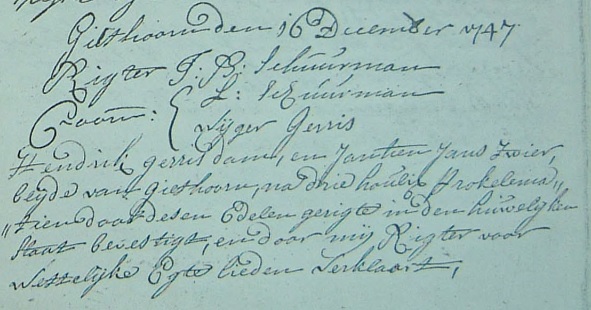 Giethoorn den 16 December 1747
Rigter J: B: Schuurman
Coorn: { L: Schuurman
Wijger Gerris
Hendrik gerris dam, en Jantien Jans Zwier,
beyde van giethoorn, na drie houlix Prokelima„
„tien door desen Edelen gerigte in den huwelyken
staat bevestigt, en door mij Rigter voor
wettelijke Egte lieden verklaart,